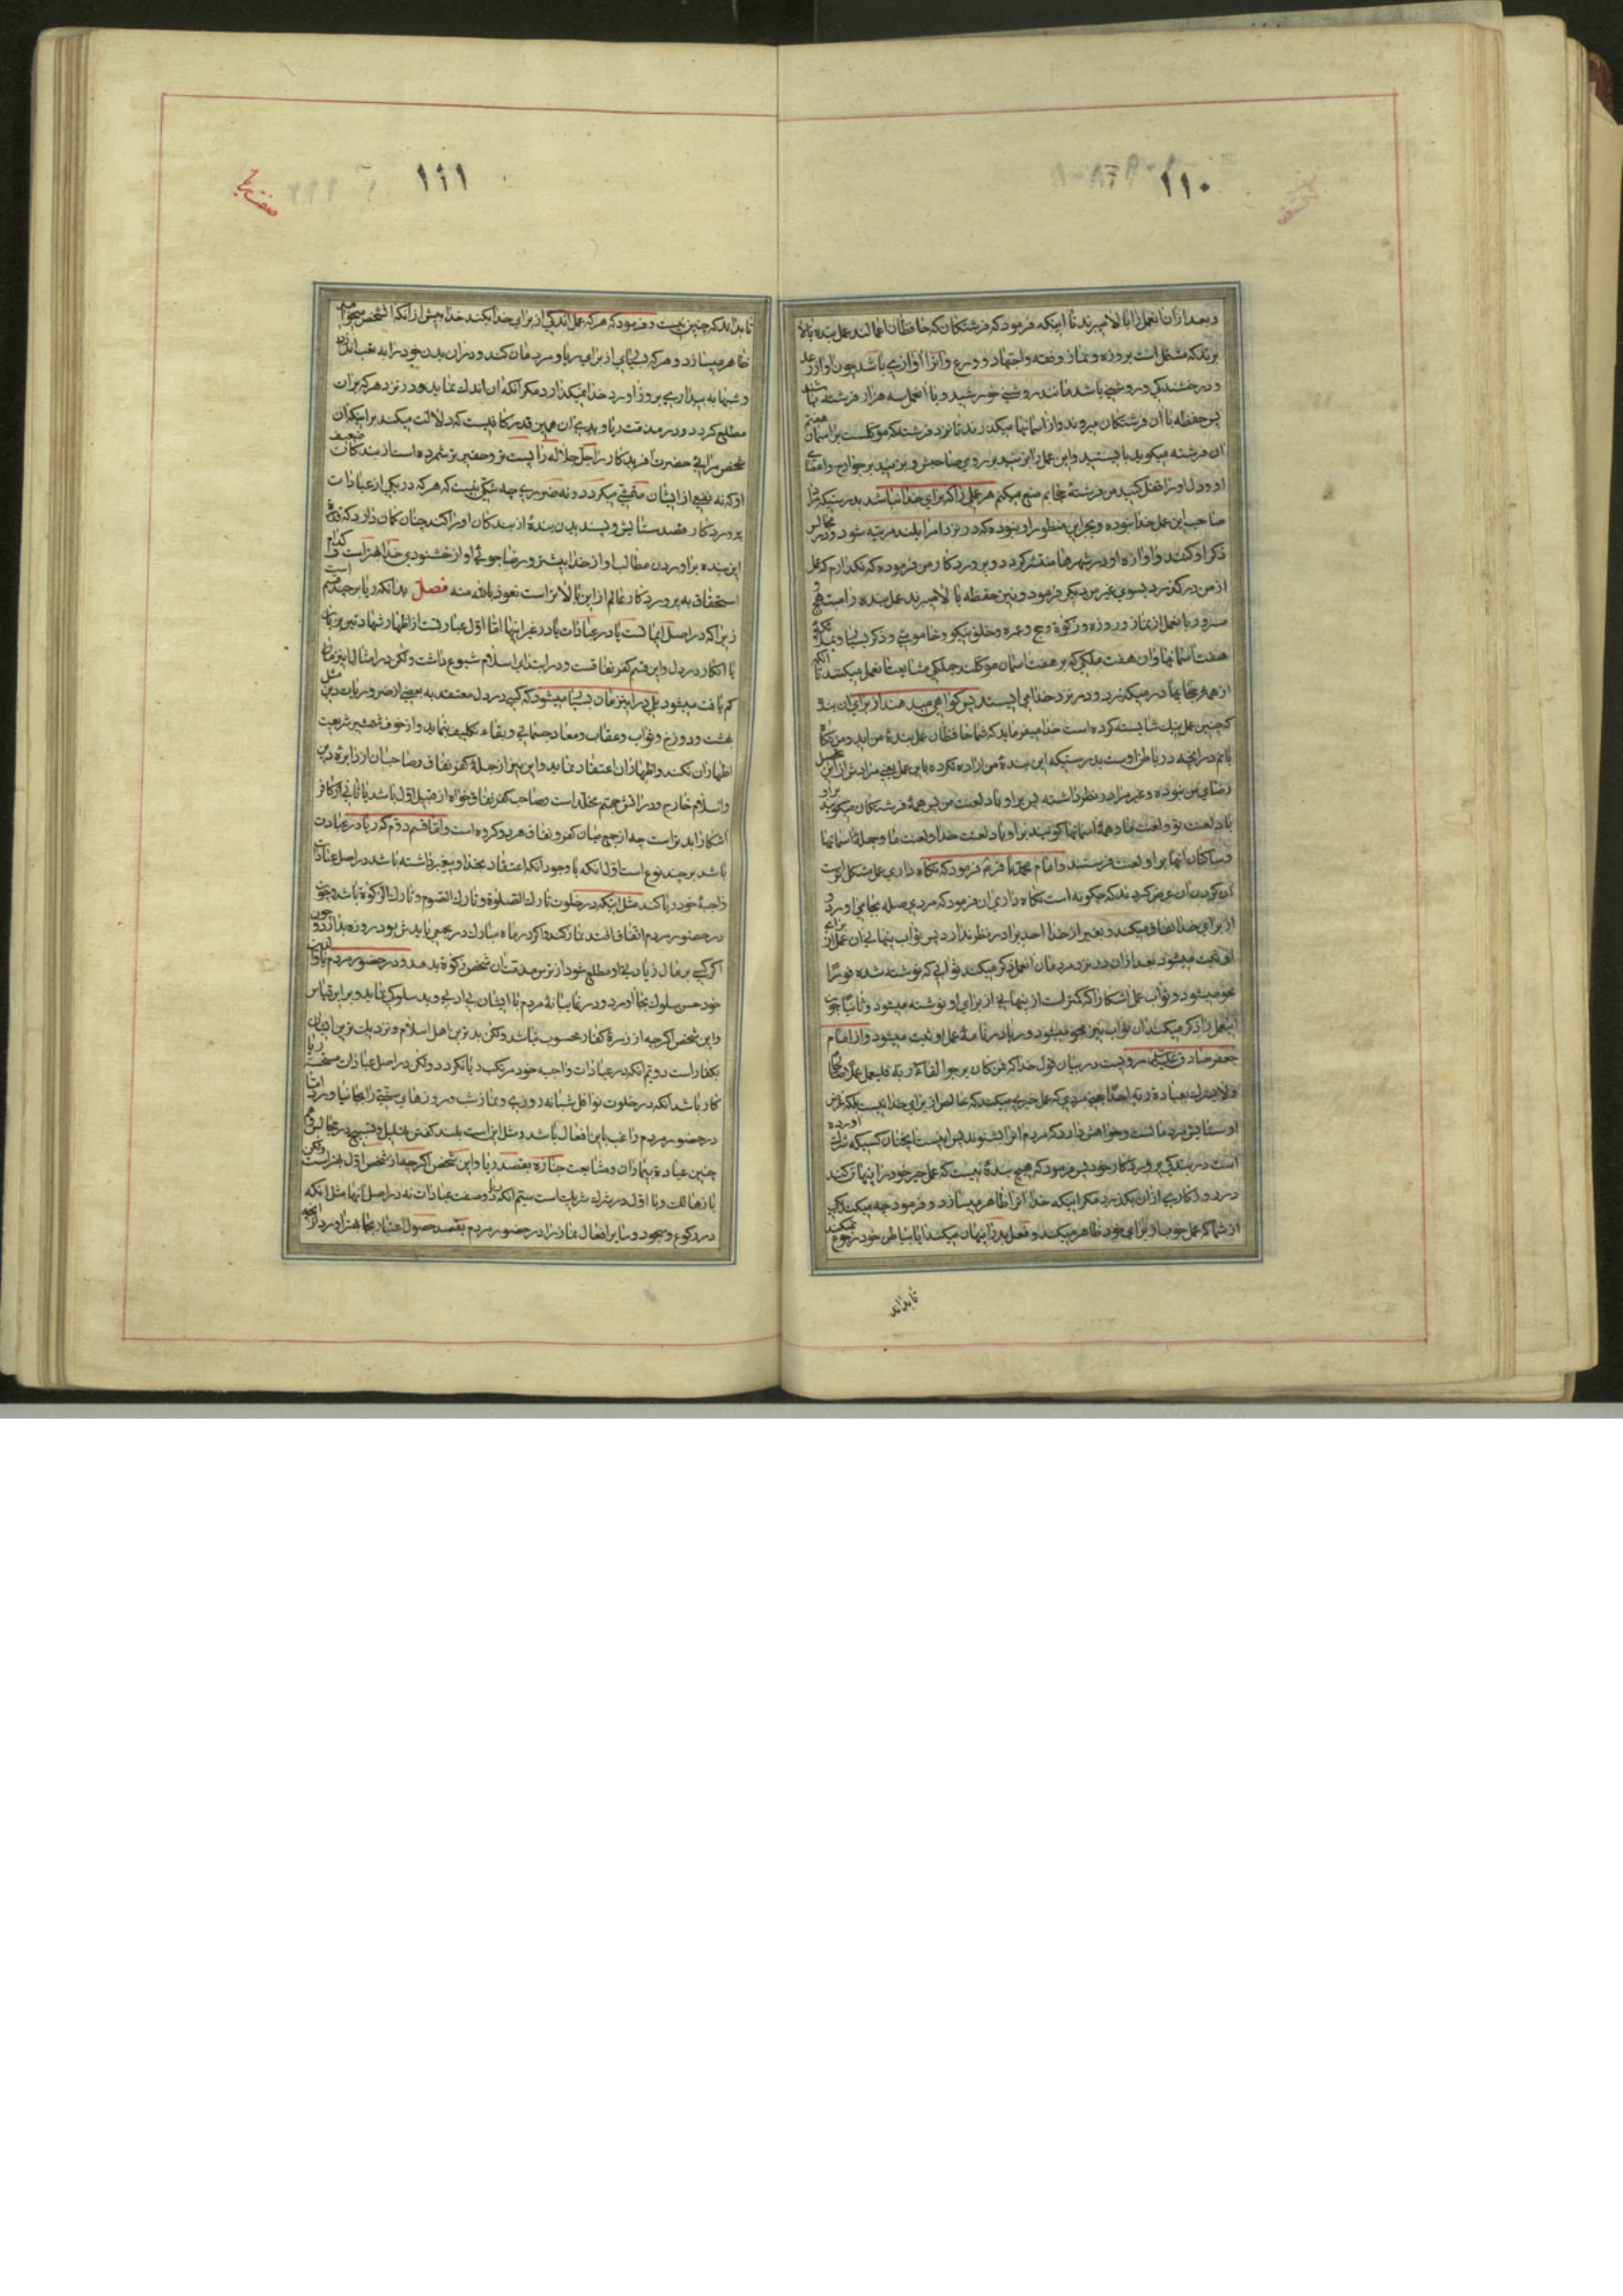 ١١٠
و بعد از آن انعمل را بالا میبرند تا اینکه فرمود که فرشتکان که حافظان اعمالند عمل بنده بالا
برند که مشتمل است بروزه و نماز و نفقه و اجتهاد و ورع و انرا آوازی باشد چون آواز رعد
و درخشندکی و روشنی باشد مانند روشنی خورشید و با انعمل سه هزار فرشته باشند
پس حفظه با آن فرشتکان میروند و از اسمانها میکذرند تا نزد فرشته که موکلست بر اسمان هفتم
آن فرشته میکوید بایستید و این عمل را بزنید بر روی صاحبش و بزنید بر جوارح و اعضای
او و دل او را قفل کنید من فرشته حجابم منع میکنم هر عملی را که برای خدا نباشد بدرستیکه مراد
صاحب این عمل خدا نبوده و بجز این منظور او نبوده که در نزد امرا بلند مرتبه شود و در مجالس
ذکر او کنند و آوازه او در شهرها منتشر کردد و پروردکار من فرموده که نکذارم که عمل
از من درکذرد بسوی غیر من دیکر فرمود و نیز حفظه بالا میبرند عمل بنده را مبتهج
مسرور با نعمل از نماز و روزه و زکوة و حج و عمره و خلق نیکو و خاموشی و ذکر بسیار و ملائکه
هفت اسمانها و ان هفت ملکی که بر هفت اسمان موکلند جملکی مشایعت انعمل میکنند تا آنکه
از همه حجابها در میکذرد و در نزد خدا می ایستند پس کواهی میدهند از برای ان بنده
که چنین عمل نیک شایسته کرده است خدا میفرماید که شما حافظان عمل بنده من اید و من نکاه
بانم در آنچه در باطن اوست بدرستیکه این بنده من اراده نکرده باین عمل یعنی مرادش از این عمل
رضای من نبوده و غیر مرا در نظر داشته پس بر او باد لعنت من پس همه فرشتکان میکویند بر او
باد لعنت تو و لعنت ما و همه اسمانها کویند بر او باد لعنت خدا و لعنت ما و جمله اسمانها
و ساکنان انها بر او لعنت فرستند و امام محمد باقر فرمود که نکاه داری عمل مشکل تر است
از کردن ان عرض کردند که چکونه است نکاه داری ان فرمود که مردی صله بجا می اورد و
از برای خدا انفاق میکند و بغیر از خدا احدی را در نظر ندارد پس ثواب پنهانی ان عمل از برای
او ثبت میشود بعد از ان در نزد مردمان انعمل ذکر میکند ثوابی که نوشته شده فورًا
محو میشود و ثواب عمل اشکار را که کمتر است از پنهانی از برای او نوشته میشود و ثانیا چون
اینعمل را ذکر میکند ان ثواب نیز محو میشود و ریا در نامه عمل او ثبت میشود و از امام
جعفر صادق علیه السلام مرویست در بیان قول خدا که فمن کان یرجوا لقاء ربه فلیعمل عملا صالحا
ولا یشرک بعبادة ربه احدًا یعنی مردی که عمل خیری میکند که خالص از برای خدا نیست بلکه غرض
او ستایش مردمانست و خواهش دارد که مردم انرا بشنوند پس اینست انچنان کسیکه شرک آورده
است در بندکی پروردکار خود پس فرمود که هیچ بنده نیست که عمل خیر خود را پنهان کند
و روزکاری از ان بکذرد مکر اینکه خدا انرا ظاهر میسازد و فرمود چه میکند یکی
از شما که عمل خوب از برای خود ظاهر میکند و فعل بد را پنهان میکند ایا بباطن خود رجوع نمیکند
تا بداند
١١١
صفت ریا
تا بداند که چنین نیست و فرمود که هر که عمل اندکی از برای خدا بکند خدا بیش از آنکه آن شخص میخواهد
ظاهر میسازد و هر که بسیاری از برای ریا و مردمان کند و در ان بدن خود را به تعب اندازد
و شبها به بیداری بروز آورد خدا نمیکذارد مکر آنکه ان اندک نماید و در نزد هر که بران
مطلع کردد و در مذمت ریا و بدی ان همین قدر کافیست که دلالت میکند بر اینکه ان
شخص مرائی حضرت افریدکار را جل جلاله را پست تر و حقیر تر شمرده است از بندکان ضعیف
او که نه نفعی از ایشان متمشی میکردد و نه ضرری چه شکی نیست که هر که در یکی از عبادات
پروردکار قصد ستایش و پسندیدن بنده از بندکان او را کند چنان کمان دارد که قدرت
این بنده بر اوردن مطالب او از خدا بیشتر و رضا جوئی او از خشنودی خدا بهتر است و کدام
استخفاف به پروردکار عالم از این بالاتر است نعوذ بالله منه فصل بدانکه ریا بر چند قسم است
زیرا که در اصل ایمانست یا در عبادات یا در غیر اینها اما اول عبارتست از اظهار شهادتین بزبان
با انکار در دل و این قسم کفر نفاقست و در ابتدای اسلام شیوع داشت و لکن در امثال این زمان
کم یافت میشود بلی در این زمان بسیار میشود که کسی در دل معتقد به بعضی از ضروریات دین مثل
بهشت و دوزخ و ثواب و عقاب و معاد جسمانی و بقاء تکلیف ننماید و از خوف شمشیر شریعت
اظهار ان نکند و اظهار ان اعتقاد نماید و این نیز از جمله کفر نفاق و صاحب ان از دایره دین
و اسلام خارج و در اتش جهنم مخلد است و صاحب کفر نفاق خواه از قبیل اول باشد یا ثانی از کافر
اشکارا بدتر است چه او جمع میان کفر و نفاق هر دو کرده است و اما قسم دوم که ریا در عبادت
باشد بر چند نوع است اول انکه با وجود انکه اعتقاد بخدا و پیغمبر داشته باشد در اصل عبادات
واجبه خود ریا کند مثل اینکه در خلوت تارک الصلوة و تارک الصوم و تارک الزکوة باشد و چون
در حضور مردم اتفاق افتد نماز کند و اکر در ماه مبارک در مجمعی بایدش بود روزه بدارد و چون
اکر کسی بر مال زیادی او مطلع شود از ترس مذمت ان شخص زکوة بدهد و در حضور مردم با والدین
خود حسن سلوک بجا اورد و در غائبانه مردم با ایشان بی ادبی و بد سلوکی نماید و بر این قیاس
و این شخص اکر چه از زمره کفار محسوب نباشد و لکن بدترین اهل اسلام و نزدیک ترین ایشان
بکفار است دویم انکه در عبادات واجبه خود مرتکب ریا نکردد و لکن در اصل عبادات مستحبه ریا
کار باشد انکه در خلوت نوافل شبانه روزی و نماز شب و روزهای سنتی را بجا نیاورد اما
در حضور مردم راغب باین افعال باشد و مثل اینست بلند کفتن تهلیل و تسبیح در مجالس و هم
چنین عیادة بیماران و مشایعت جنازه بقصد ریا و این شخص اکر چه از شخص اول بهتر است و لکن
باز هالک و با اول در شرک شریک است سیم انکه ریا در وصف عبادات نه در اصل آنها مثل انکه
در رکوع و سجود و سایر افعال نماز را در حضور مردم بقصد حصول اعتبار بجا بهتر اورد از آنچه